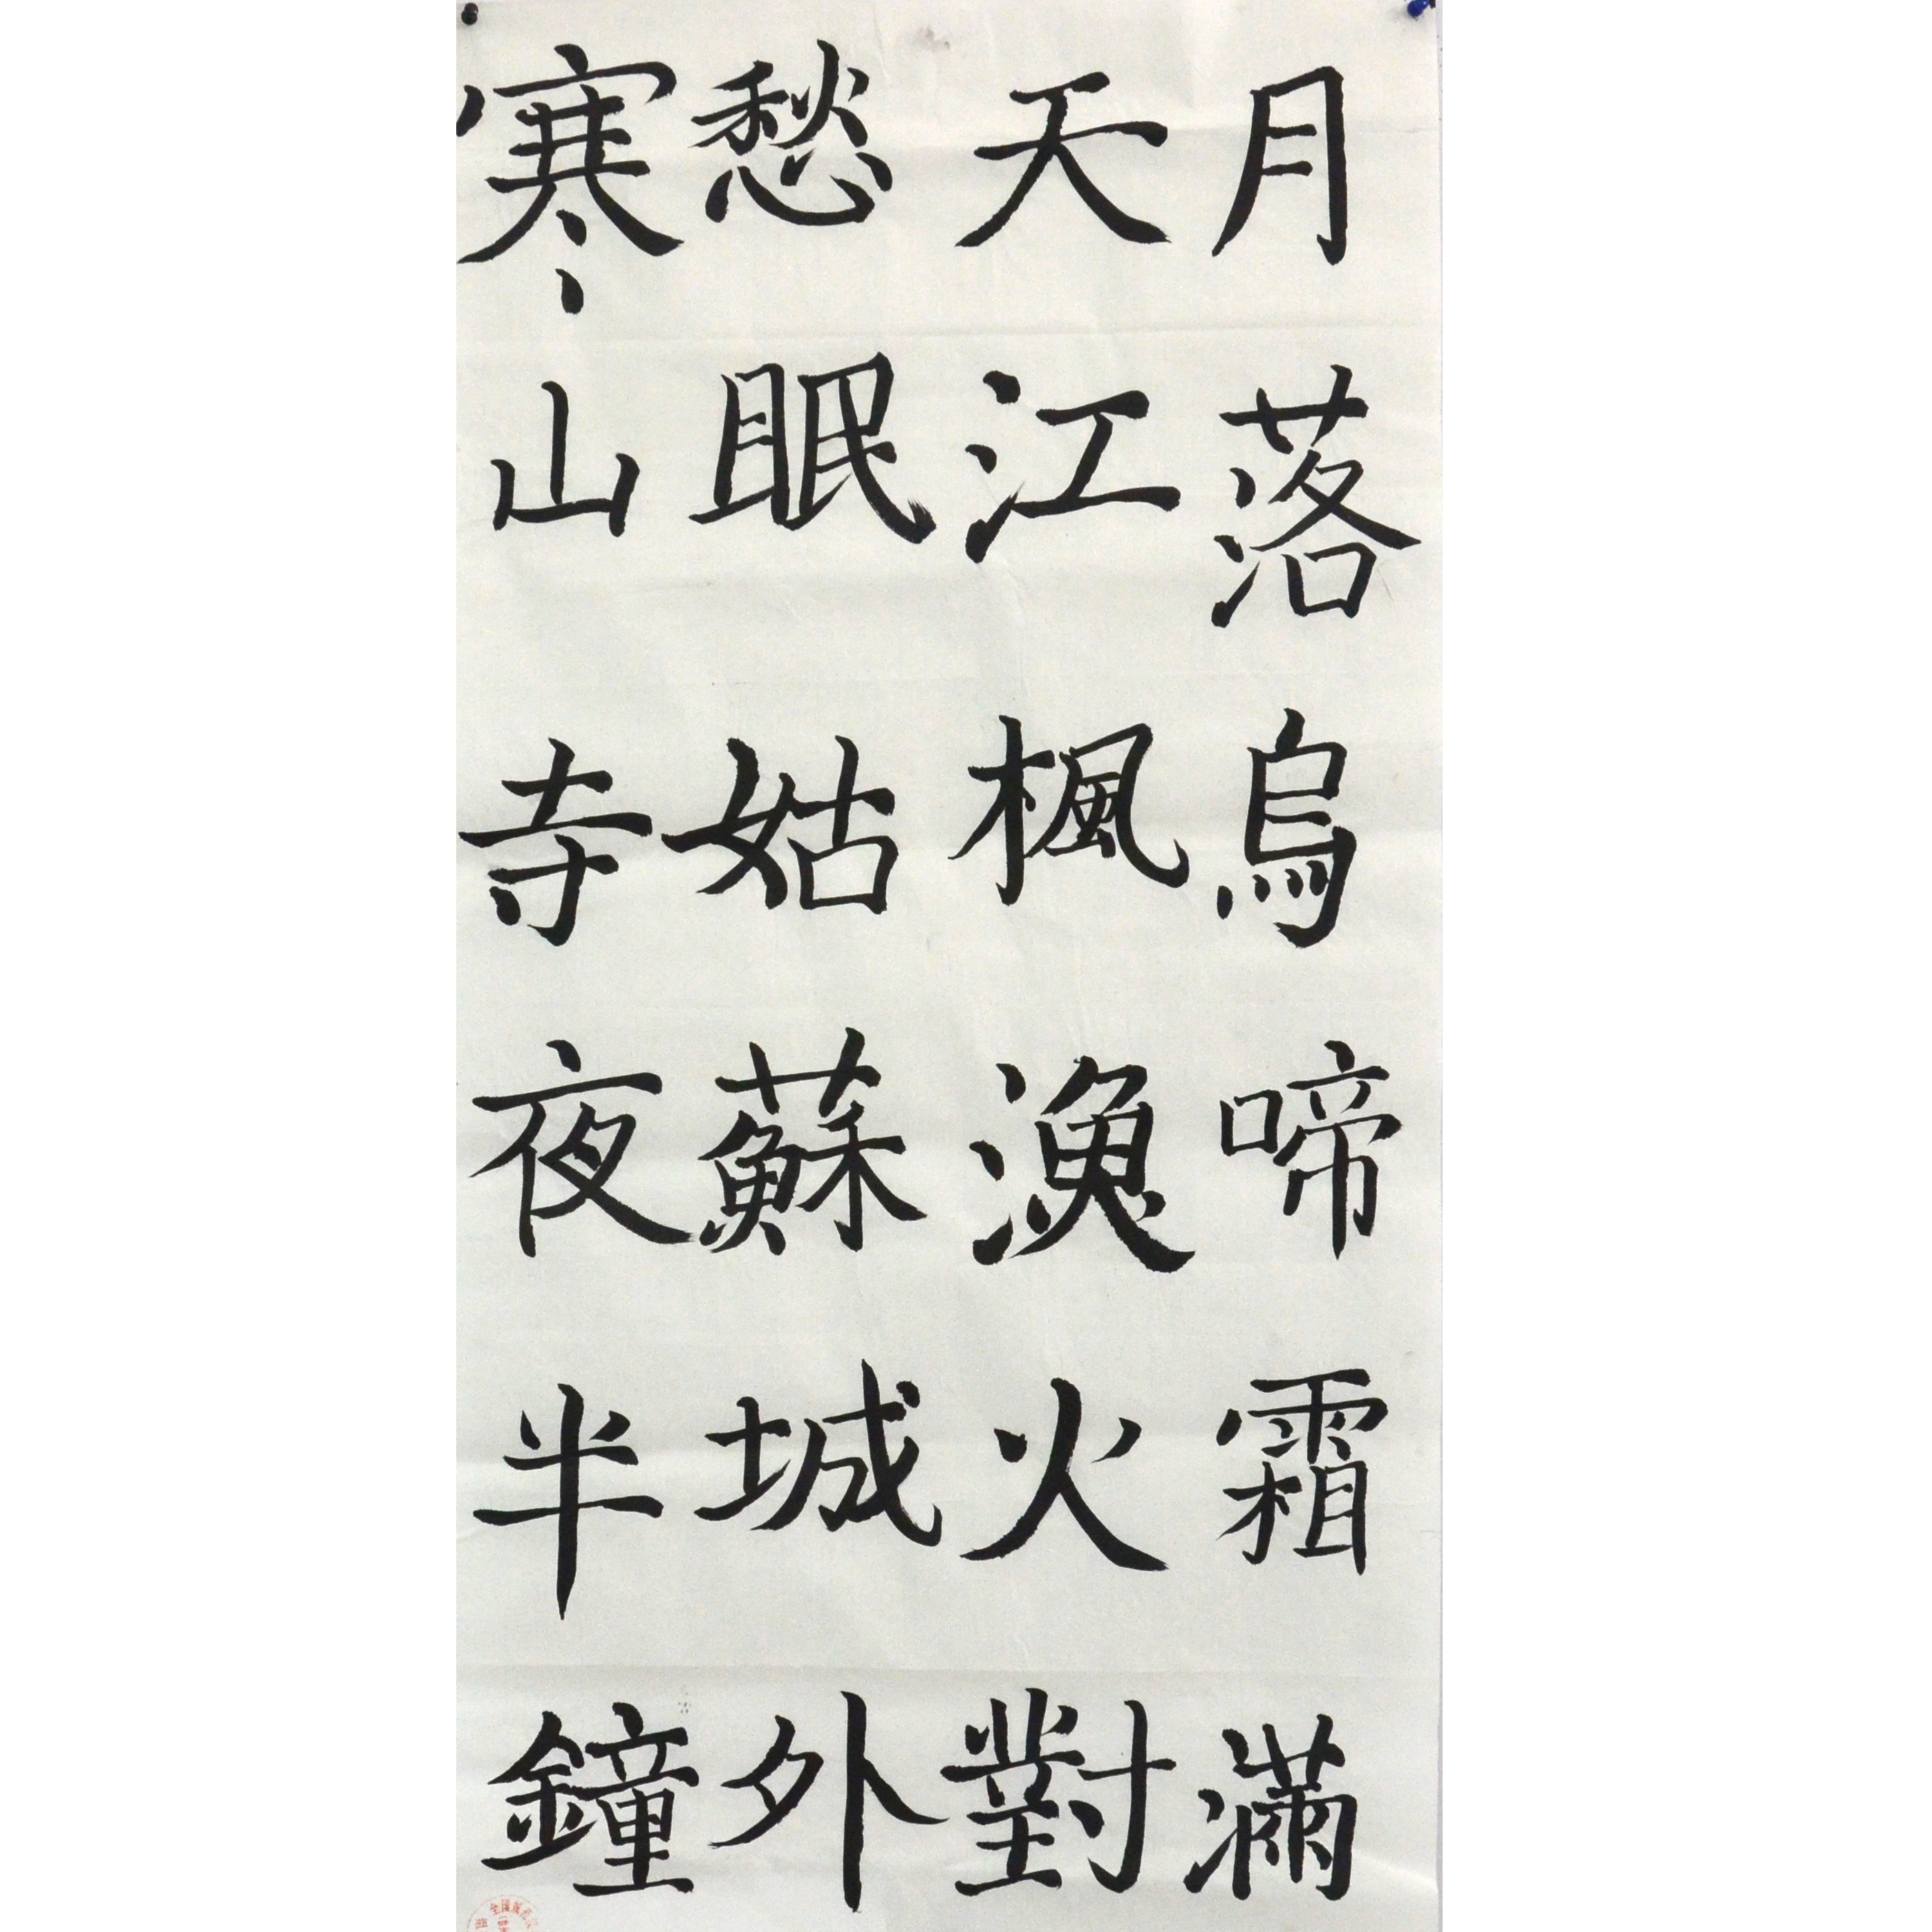 月落烏啼霜滿
天江楓漁火對
愁眠姑蘇城外
寒山寺夜半鐘